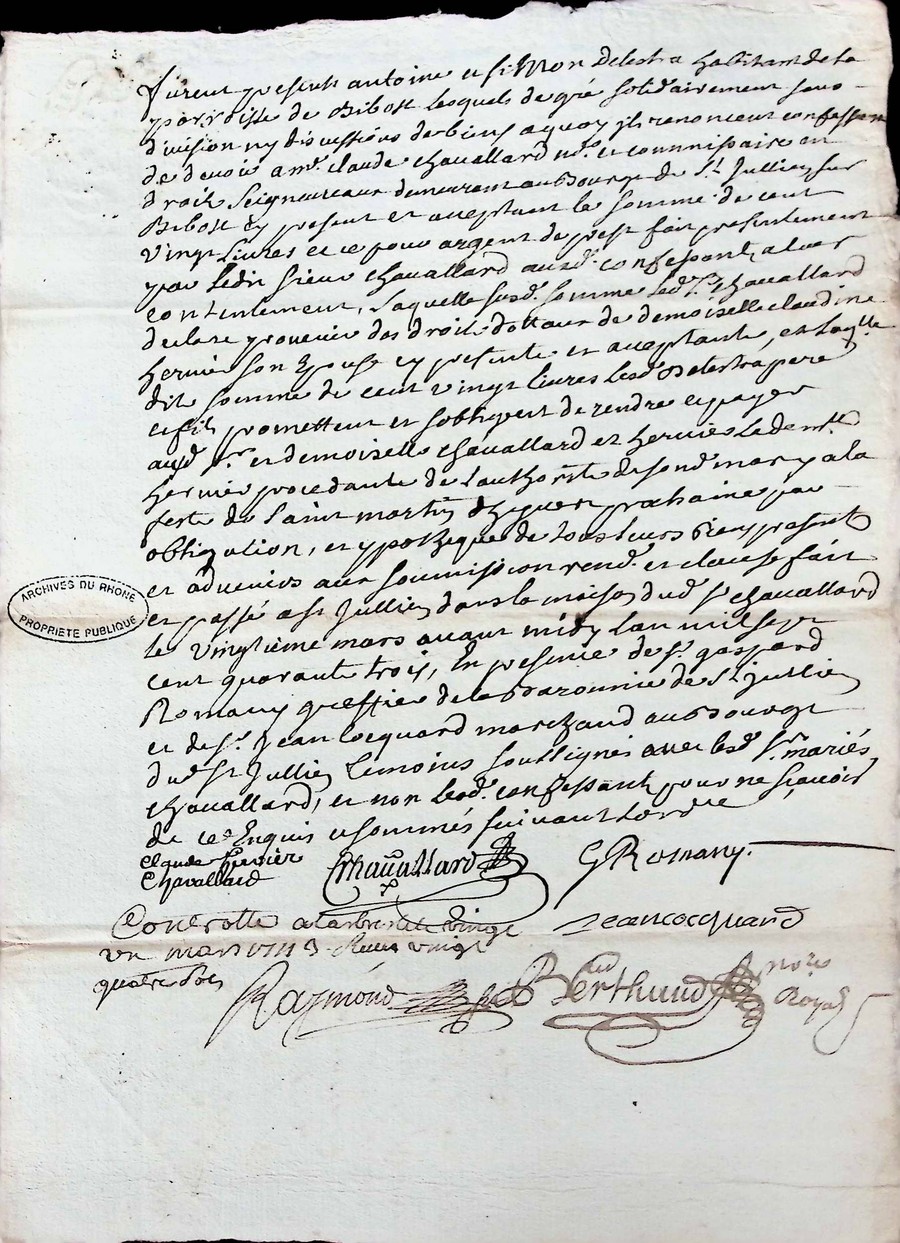 furent presents antoine et simon delestra habitant de la
parroisse de Bibost lesquels de gré solidairement sans
division ny discussions de biens a quoy ils renoncent confessent
de devoir a me. claude chavallard no.re et commissaire en
droit seigneuriaux demeurant au Bourg de St. Jullien sur
Bibost cy present et acceptant la somme de cent
vingt livres et ce pour argent de prest fait presentement
par ledit sieur chavallard ausd. confessants a leur
contentement, laquelle susd. somme led. Sr. chavallard
declare provenir des droit dottaux de demoiselle claudine
hervier son Epouse cy presente et acceptante, et laqlle
dite somme de cent vingt livres lesd. Delestra pere
et fils promettent et sobligent de rendre et payer
ausd. Sr. et demoiselle chavallard et hervier lade. mlle
hervier procedante de lauthorité de sond. mary a la
feste de saint martin dhyver prochaine par
obligation, et ypotheque de tous leurs biens presents
et advenirs aux soumission rend. et clause fait
et passé a st Jullien dans la maison dud. sr chavallard
le vingtième mars avant midy lan mil sept
cent quarante trois, En presence de sr. gaspard
Romany greffier de la Baronnie de St jullien
et de sr. Jean Cocquard marchand au Bourg
dud. St Jullien temoins soussignés avec lesd. Srs. mariés
chavallard, et non lesd. confessants pour ne sçavoir
de ce Enquis et sommés suivant lordre
claude hervier
Chavallard
Chavallard
GRomany.
Controllé a larbresle vingt
un mars 1743 Reçu vingt
quatre sols
Jean cocquard
Raymond
Berthaud
no.re
Royal
ARCHIVES DU RHONE
PROPRIETE PUBLIQUE